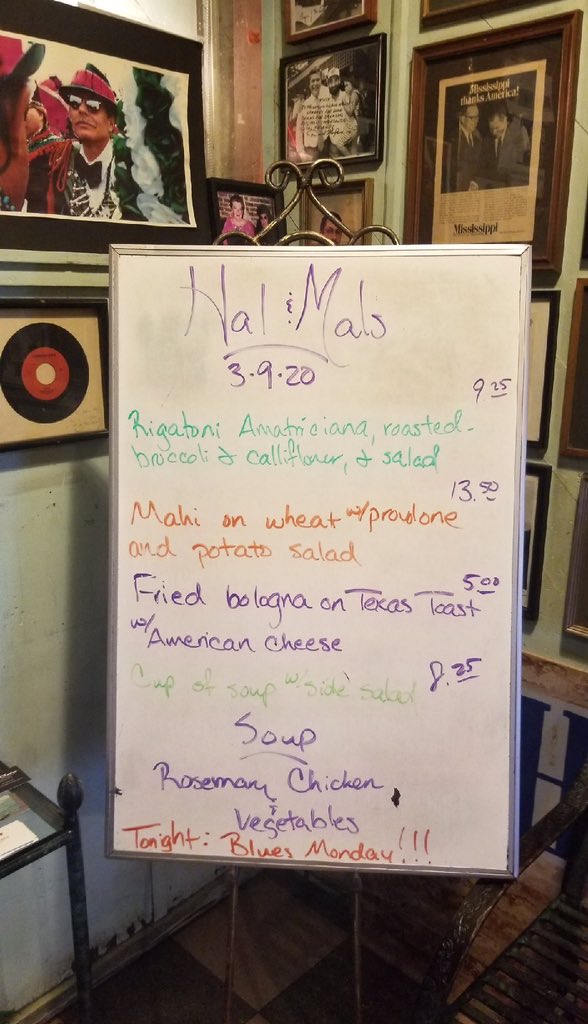 Mississippi
thanks America!
Mississippi
Hal & Mals
3.9.20
9 25
Rigatoni Amatriciana, roasted
broccoli & califlower, & salad
13.50
Mahi on wheat w/ provolone
and potato salad
5 00
Fried bologna on Texas Toast
w/ American cheese
8.25
Cup of soup w/ side salad
Soup
Rosemary Chicken
&
vegetables
Tonight: Blues Monday!!!